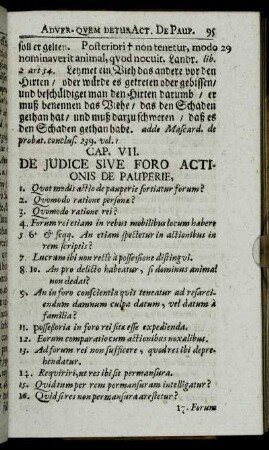 ADVER-QVEM DETUR ACT. DE PAUP. 95
soll er gelten. Posteriori † non tenetur, modo 29
nominaverit animal, qvod nocuit. Landr. lib.
2 art 34. Leymet ein Vieh das andere vor den
Hirten / oder würde es getreten oder gebissen/
und beschüldiget man den Hirten darumb / er
muß benennen das Viehe / das den Schaden
gethan hat / und muß darzu schweren / daß es
den Schaden gethan habe. adde Mascard. de
probat. conclus. 239. vol. 1
CAP. VII.
DE JUDICE SIVE FORO ACTI-
ONIS DE PAUPERIE,
1. Qvot modis actio de pauperie sortiatur forum?
2. Qvomodo ratione persona?
3. Qvomodo ratione rei?
4. Forum rei etiam in rebus mobilibus locum habere
5 6. & seqq. An etiam spectetur in actionibus in
rem scriptis?
7. Lucrum ibi non rectè à possessione distingvi.
8. 10. An pro delicto habeatur, si dominus animal
non dedat?
9. An in foro conscientiæ qvis teneatur ad resarci-
endum damnum culpa datum, vel datum à
familia?
11. possessoria in foro rei sitæ esse expedienda.
12. Eorum comparatio cum actionibus noxalibus.
13. Ad forum rei non sufficere, qvod res ibi depre-
hendatur.
14. Reqviriri, ut res ibi sit permansura.
15. Qvid tum per rem permansuram intelligatur?
16. Qvid si res non permansura arestetur?
17. Forum